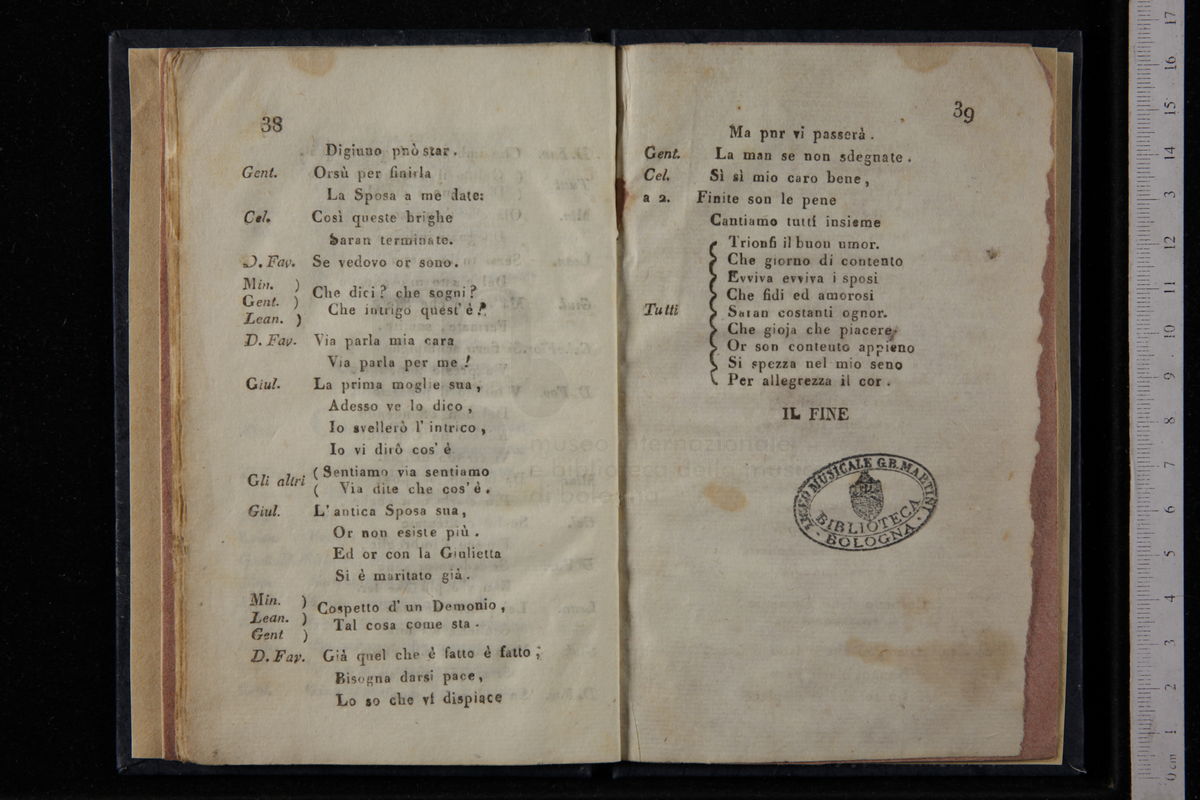 38
Digiuno può star.
Gent. Orsù per finirla
La Sposa a me date:
Cel. Così queste brighe
Saran terminate.
D. Fav. Se vedovo or sono.
Min. )
Gent. ) Che dici? che sogni?
Lean. ) Che intrigo quest' è!
D. Fav. Via parla mia cara
Via parla per me!
Giul. La prima moglie sua,
Adesso ve lo dico,
Io svellerò l' intrico,
Io vi dirò cos' è
Gli altri ( Sentiamo via sentiamo
( Via dite che cos' è.
Giul. L' antica Sposa sua,
Or non esiste più.
Ed or con la Giulietta
Si è maritato già.
Min. )
Lean. ) Cospetto d' un Demonio,
Gent ) Tal cosa come sta.
D. Fav. Già quel che è fatto è fatto;
Bisogna darsi pace,
Lo so che vi dispiace
39
Ma pnr vi passerà.
Gent. La man se non sdegnate.
Cel. Sì sì mio caro bene,
a 2. Finite son le pene
Cantiamo tutti insieme
Trionfi il buon umor.
Che giorno di contento
Evviva evviva i sposi
Che fidi ed amorosi
Tutti Saran costanti ognor.
Che gioja che piacere
Or son contento appieno
Si spezza nel mio seno
Per allegrezza il cor.
IL FINE
LICEO MUSICALE G.B. MARTINI
BIBLIOTECA
BOLOGNA
museo internazionale
e biblioteca della musica
di bologna
17
16
15
14
13
12
11
10
9
8
7
6
5
4
3
2
1
0 cm